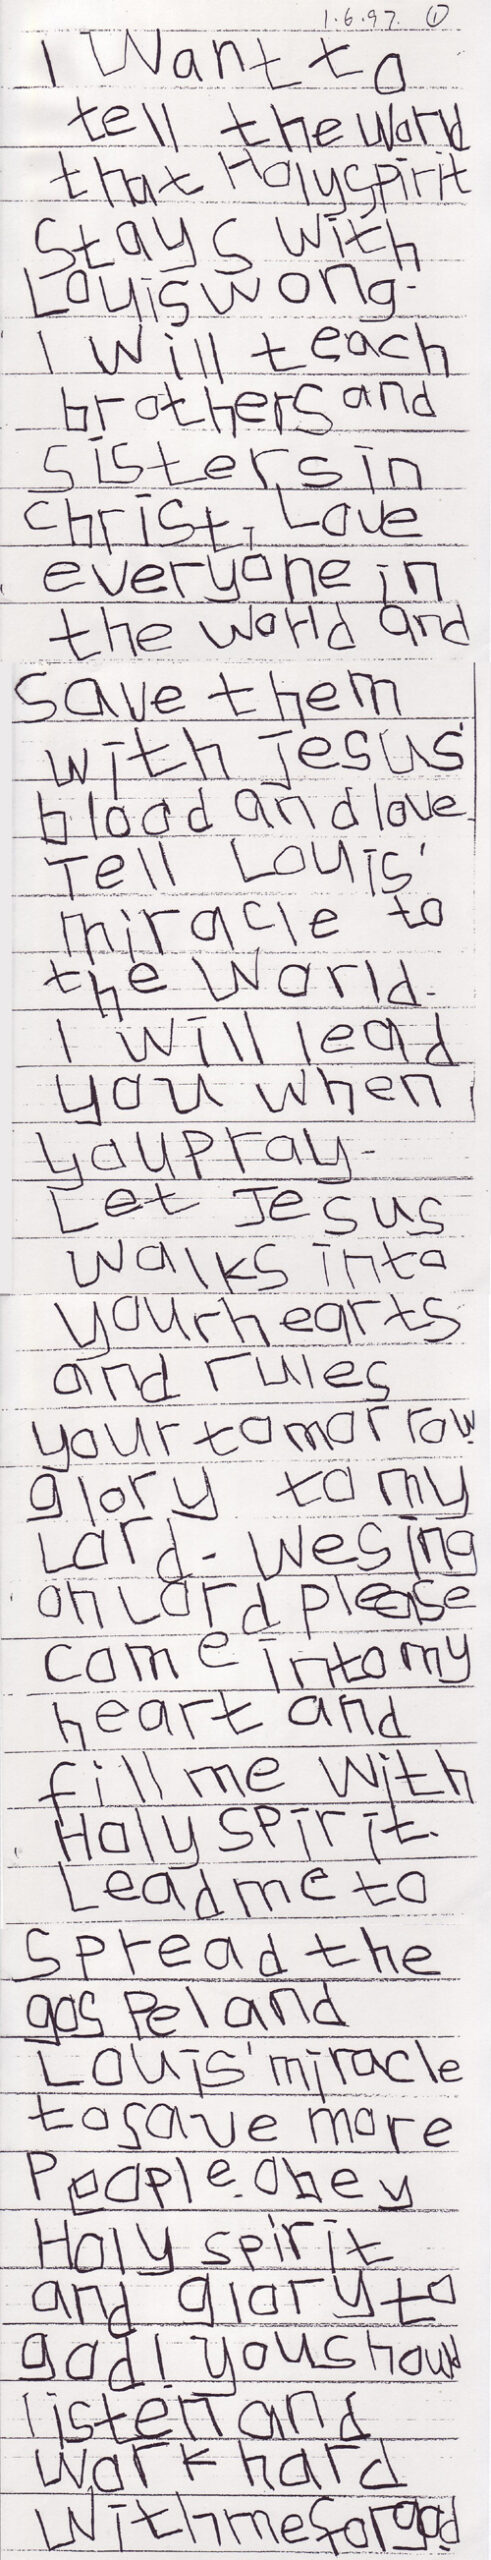 1.6.97. ①
I Want to
tell the World
that Holyspirit
Stays with
Louis wong.
I Will teach
brothers and
sisters in
christ, Love
everyone in
the World and
save them
with Jesus'
blood and love.
Tell Louis'
miracle to
the World.
I will lead
you when
you pray.
Let Jesus
walks into
your hearts
and rules
your tomorrow
glory to my
Lord. We sing
on Lord please
come into my
heart and
fill me with
Holy spirit.
Lead me to
spread the
gospel and
Louis' miracle
to save more
People. Obey
Holy spirit
and glory to
god! you should
listen and
work hard
with me for god